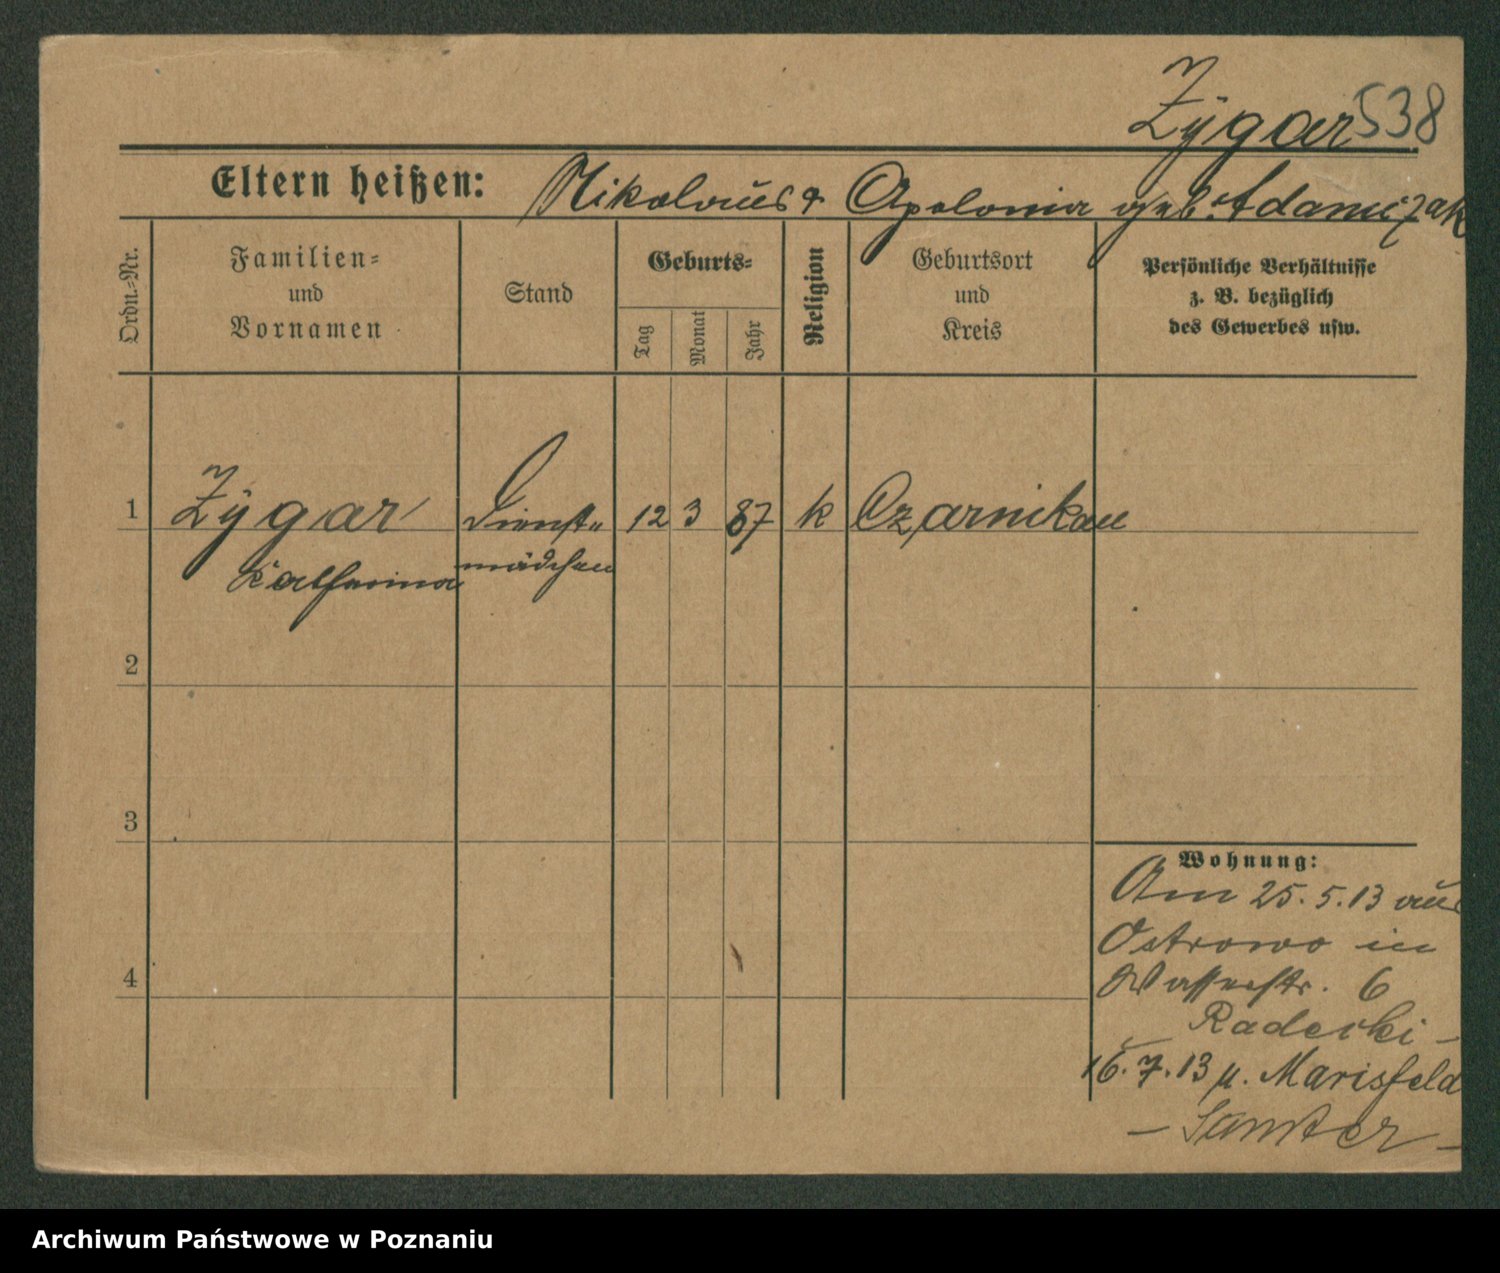 Zÿgar 538
Eltern heißen: Nikolaus & Apolonia geb. Adamczak
Ordn.-Nr.
Familien-
und
Vornamen
Stand
Geburts-
Tag
Monat
Jahr
Religion
Geburtsort
und
Kreis
Persönliche Verhältnisse
z. B. bezüglich
des Gewerbes usw.
1 Zÿgar Dienst- 12 3 87 k Czarnikau
Katharina mädchen
2
3
4
Wohnung:
Am 25.5.13 aus
Ostrowo in
Wasserstr. 6
Radecki -
16.7.13 n. Marisfeld
- Samter -
Archiwum Państwowe w Poznaniu